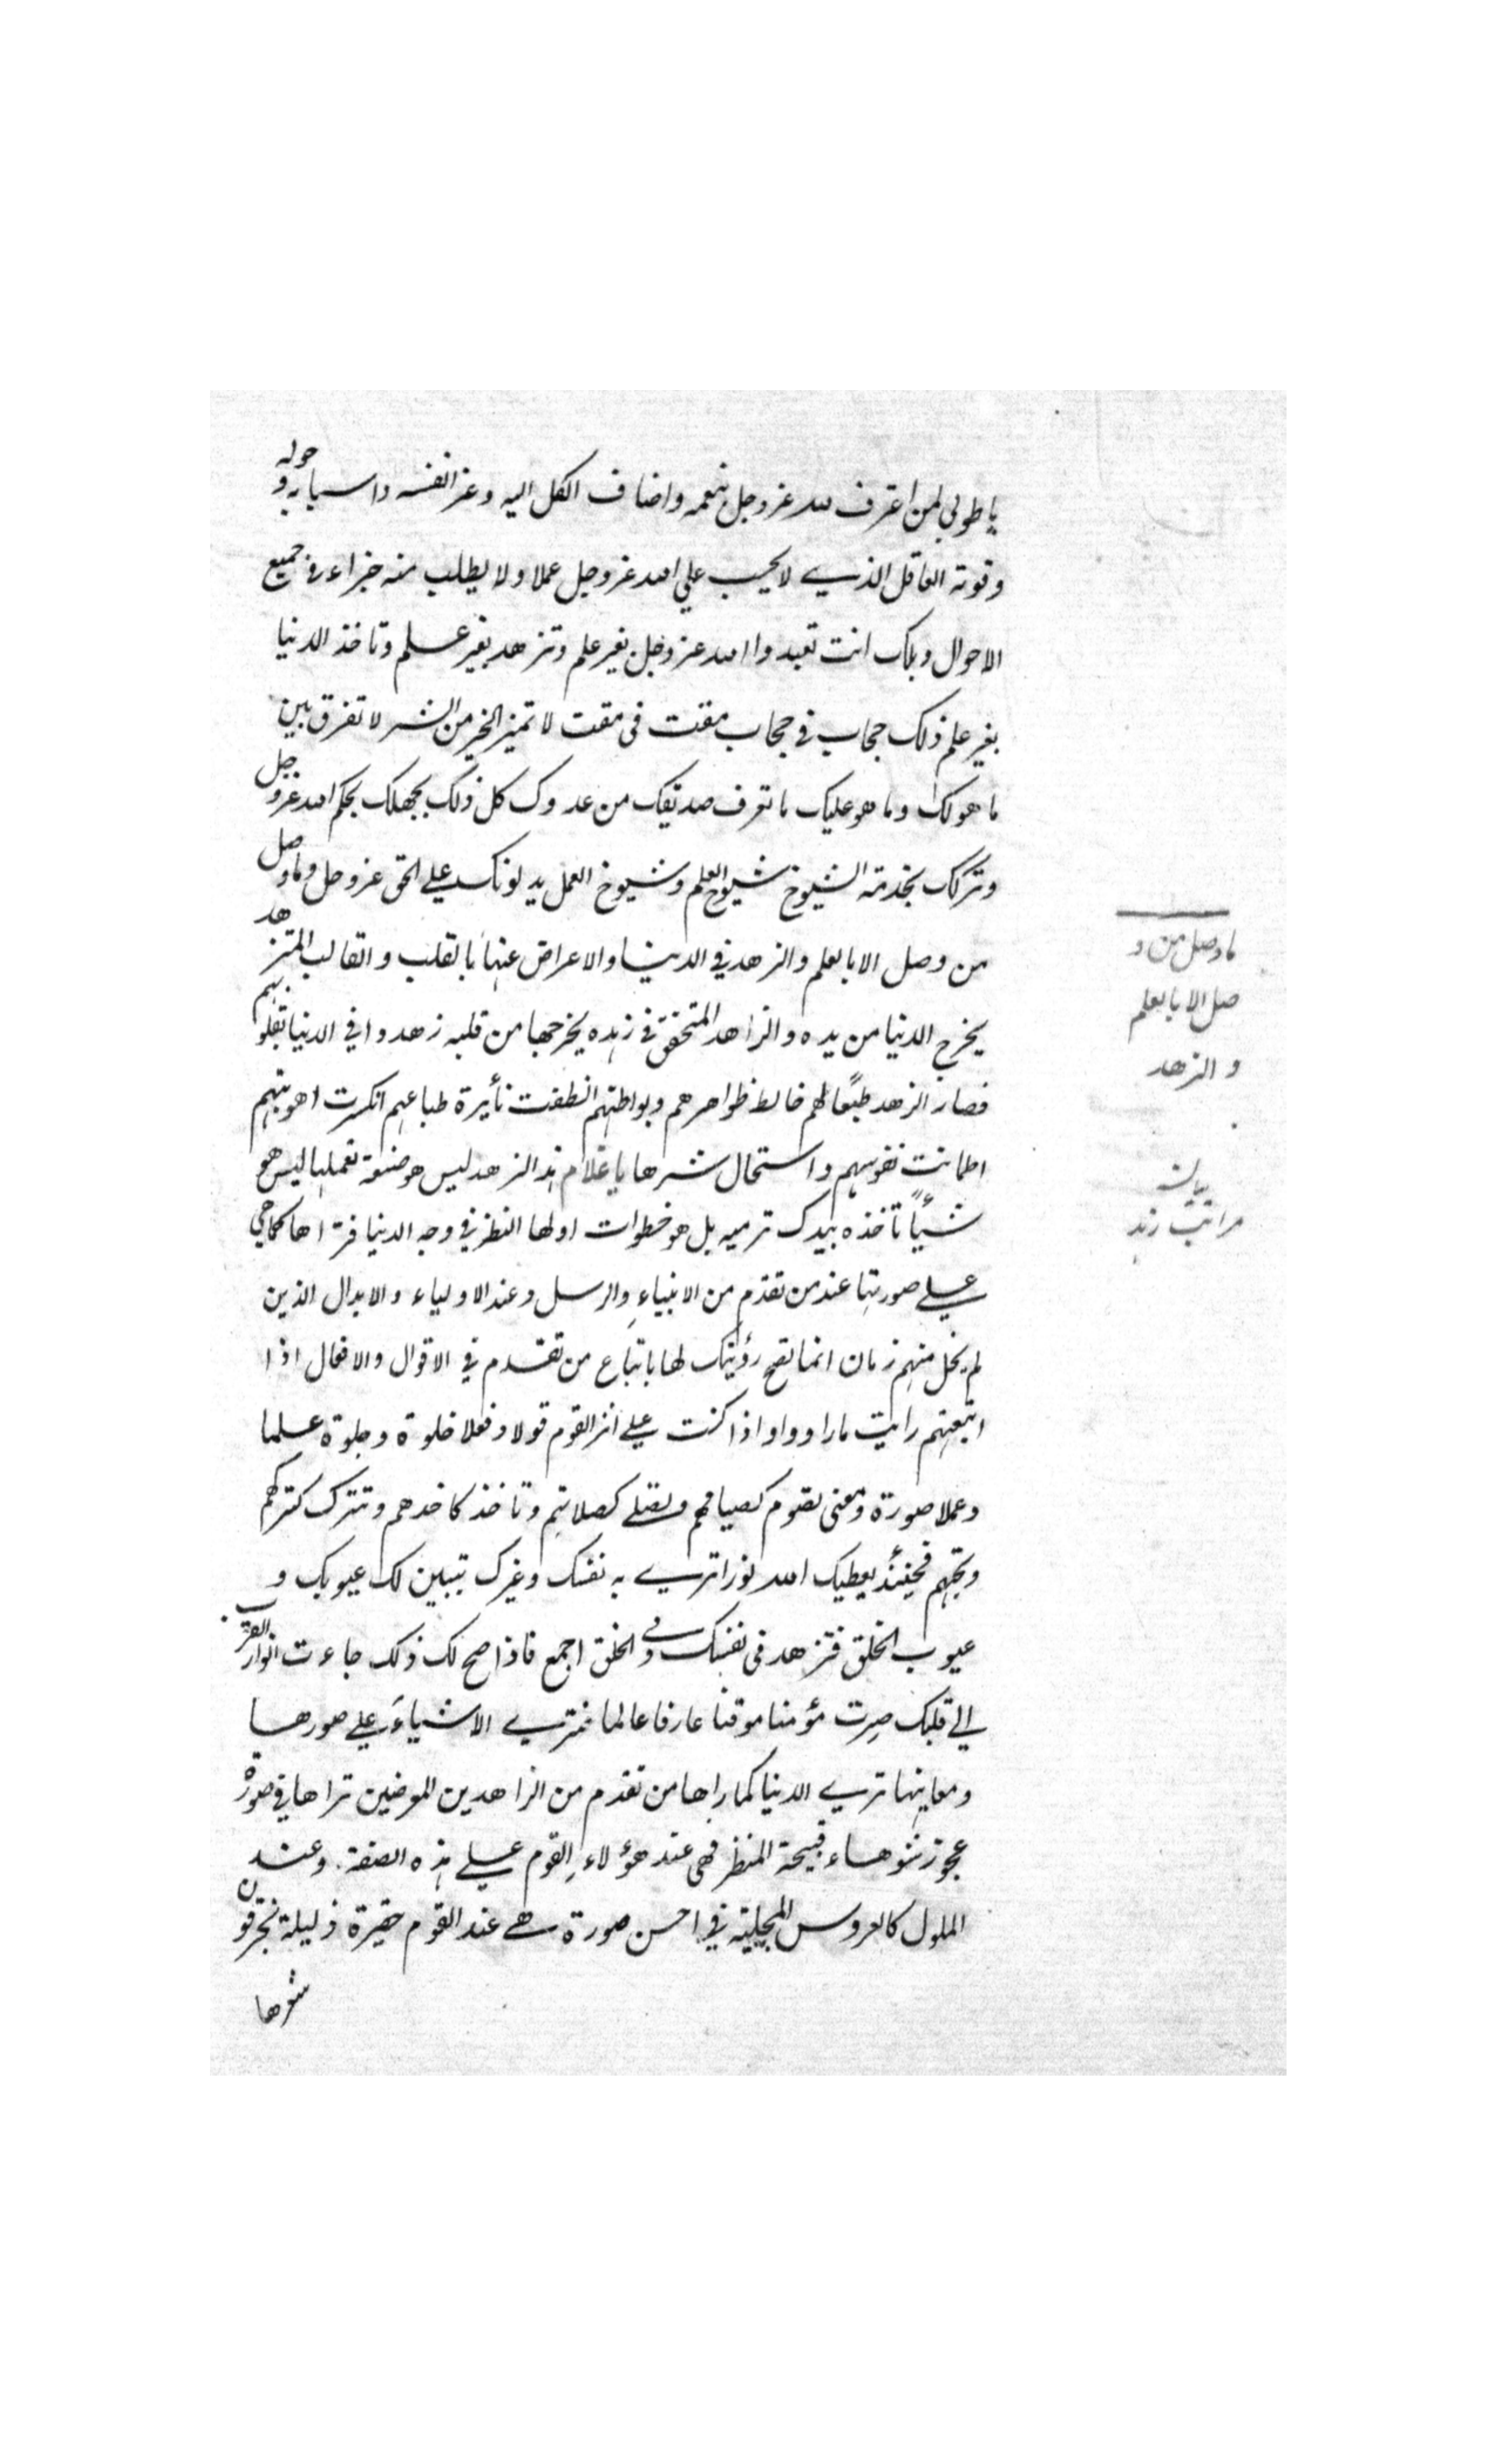 يا طوبي لمن اعترف لله عز وجل بنعمه واضاف الكل اليه وعز انفسه واسبابه و حوله
وقوته العاقل الذي لا يحسب علي الله عز وجل عملا ولا يطلب منه جزاء في جميع
الاحوال ويلك انت تعبد والله عز وجل بغير علم وتزهد بغير علم وتاخذ الدنيا
بغير علم ذلك حجاب في حجاب مقت في مقت لا تميز الخير من الشر لا تفرق بين
ما هو لك وما هو عليك ما تعرف صديقك من عدوك كل ذلك بجهلك بحكم الله عز وجل
وتركك بخدمة الشيوخ شيوخ العلم وشيوخ العمل يدلونك علي الحق عز وجل وما وصل
من وصل الا بالعلم والزهد في الدنيا والاعراض عنها بالقلب والقالب المتزهد
يخرج الدنيا من يده والزاهد المتحقق في زهده يخرجها من قلبه زهدوا في الدنيا بقلوبهم
فصار الزهد طبعًا لهم خالط ظواهرهم وبواطنهم انطفت نأيرة طباعهم انكسرت اهويتهم
اطمانت نفوسهم واستحال شرها يا غلام هذ الزهد ليس هو صنعة تعملها ليس هو
شيأً تأخذه بيدك ترميه بل هو خطوات اولها النظر في وجه الدنيا فتراها كما هي
علي صورتها عند من تقدم من الانبياءِ والرسل وعند الاولياء والابدال الذين
لم يخل منهم زمان انما تصح رؤيتك لها باتباع من تقدم في الاقوال والافعال اذا
اتبعتهم رايت ما راووا واذا كنت علي اثر القوم قولا وفعلا خلوة وجلوة علما
وعملا صورة ومعنى تصوم كصيامهم وتصلي كصلاتهم وتاخذ كاخدهم وتترك كتركهم
وتحبهم فحينئذ يعطيك الله نورا تري به نفسك وغيرك تبين لك عيوبك و
عيوب الخلق فتزهد في نفسك وفي الخلق اجمع فاذا صح لك ذلك جاءت انوار القرب
الي قلبك صِرت مؤمنا موقنا عارفا عالما فتري الاشياءَ علي صورها
ومعاينها تري الدنيا كما راها من تقدم من الزاهدين المعرضين تراها في صورة
عجوز شوهاء قبيحة المنظر فهي عند هؤلاءِ القوم علي هذه الصفة. وعند
الملوك كالعروس المجلية في احسن صورة هي عند القوم حقيرة ذليلة يحرقون
شعرها
ما وصل من و
صل الا بالعلم
و الزهد
بيان
مراتب زهد